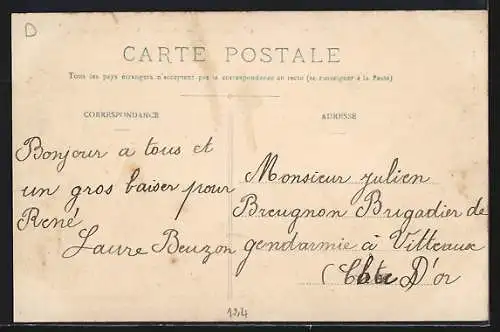 D
CARTE POSTALE
Tous les pays étrangers n'acceptent pas la correspondance au recto (se renseigner à la Poste)
CORRESPONDANCE
Bonjour a tous et
un gros baiser pour
René
Laure Beuzon
ADRESSE
Monsieur julien
Breugnon Brigadier de
gendarmie à Vitteaux
(Côte D'or
124